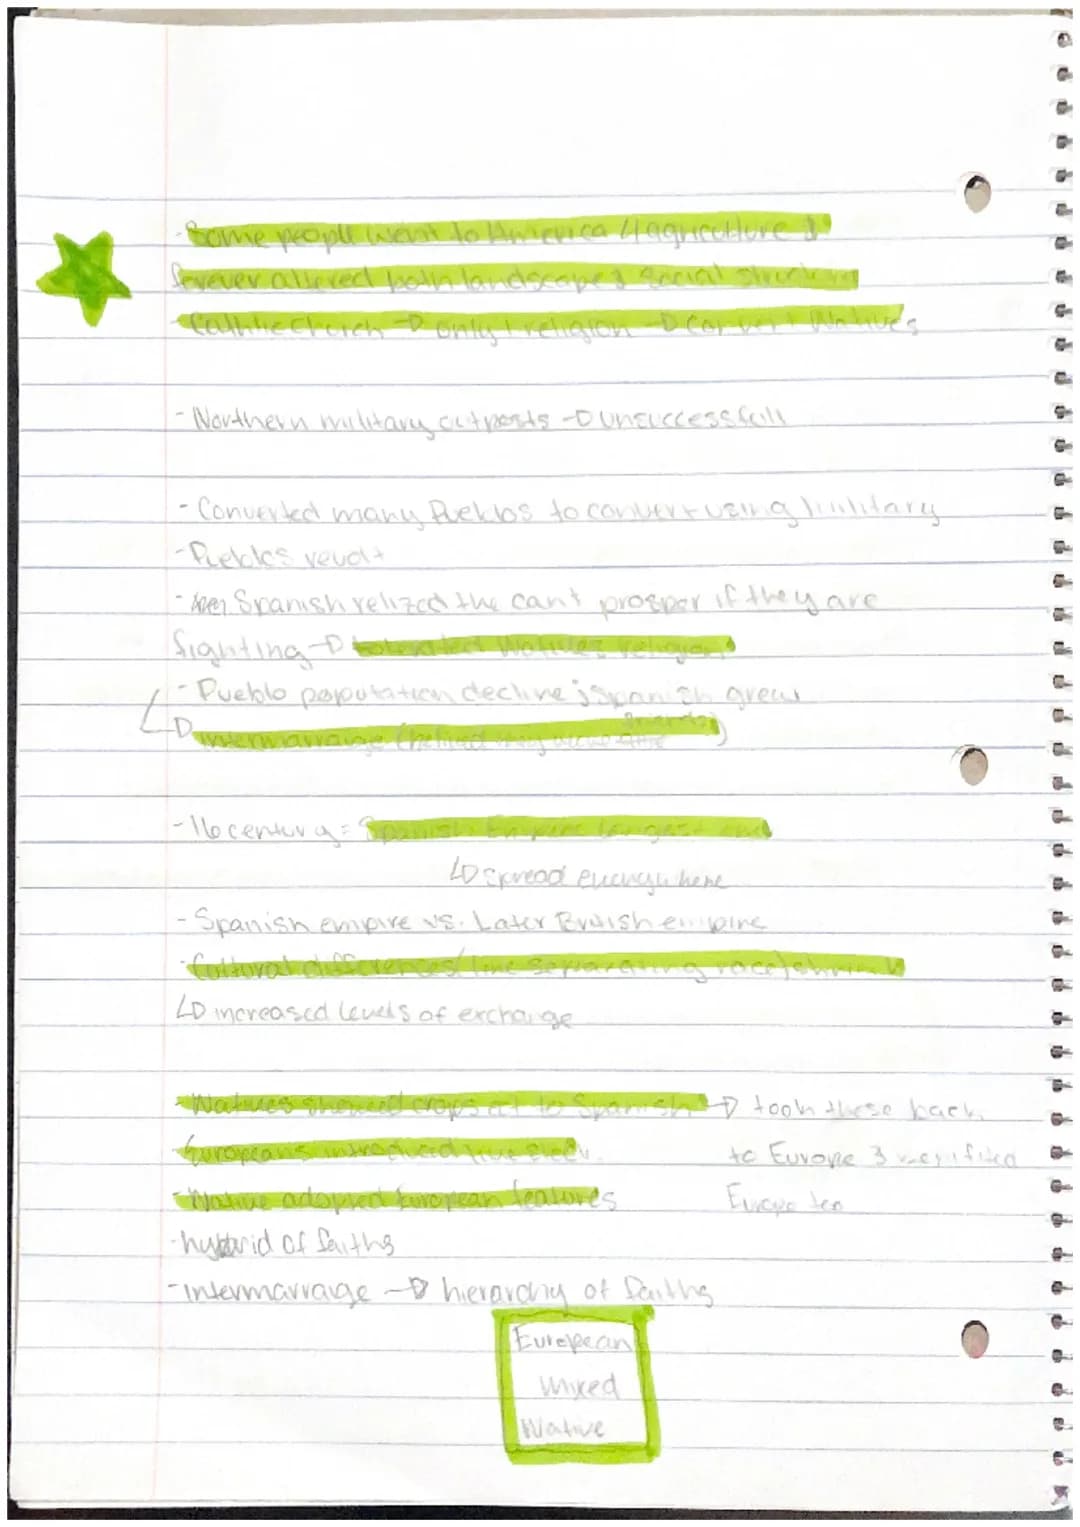 - Some people went to America 4 agriculture &
forever altered both landscape & social structure
- Cathlic Church → only 1 religion → convert Natives
- Northern military outposts → unsuccessfull
- Converted many Pueblos to convert using military
- Pueblos revolt
- Spanish relized the can't prosper if they are
fighting → tolerated Natives religion
- Pueblo poputation decline ; Spanish grew
↳ intermarraige (helped
- 16 century = Spanish Empire largest one
↳ spread everywhere
- Spanish empire vs. Later British empire
- Cultural differences (line separating race) shrink
↳ increased levels of exchange
- Natives showed crops ect to Spanish → took these back
- Europeans introduced live stock. to Europe &
- Native adopted European features Europe too
- hybrid of faiths
- intermarraige → hierarchy of faiths
European
Mixed
Native